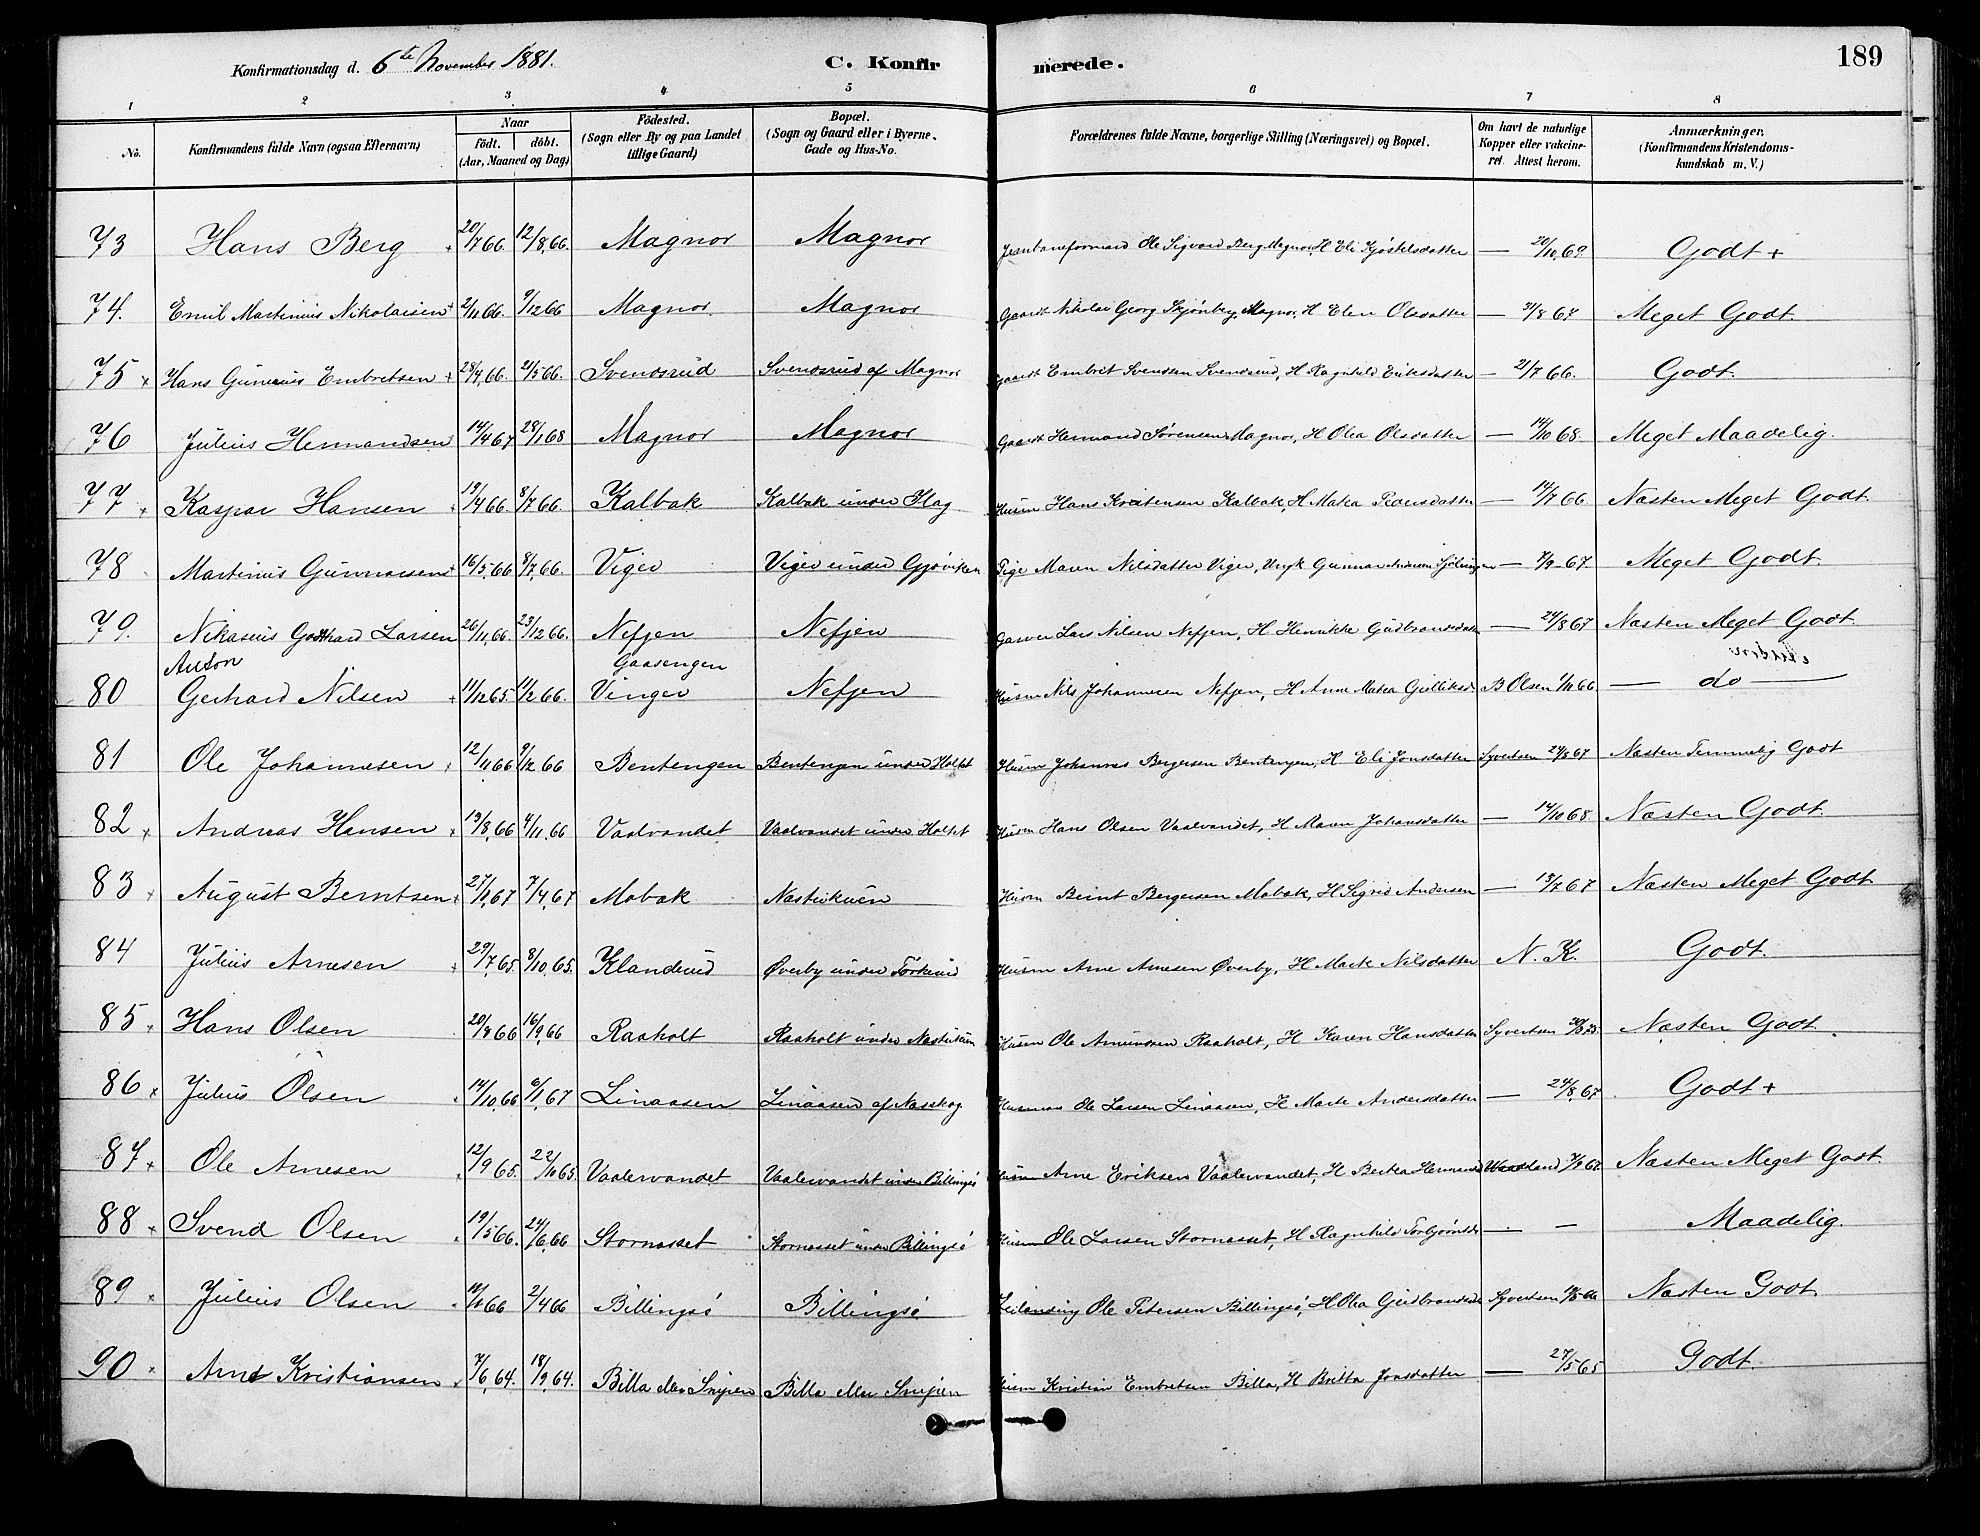 Konfirmationsdag d. 6te November 1881. C. Konfirmerede. 189
1 2 3 4 5 6 7 8
No. Konfirmandens fulde Navn (ogsaa Efternavn) Naar født. døbt. (Aar, Maaned og Dag) Fødested. (Sogn eller By og paa Landet tillige Gaard) Bopæl. (Sogn og Gaard eller i Byerne. Gade og Hus-No. Forældrenes fulde Navne, borgerlige Stilling (Næringsvei) og Bopæl. Om havt de naturlige Kopper eller vakcineret. Attest herom. Anmærkninger. (Konfirmandens Kristendomskundskab m. V.)
73 Hans Berg 20/7 66. 12/8, 66. Magnor Magnor Jernbaneformand Ole Sigvard Berg Magnor, H Eli Kjøstelsdatter — 20/10, 69. Godt +
74. Emil Martinius Nikolaisen 2/11 66. 9/12 66 Magnor Magnor Gaardr Nikolai Georg Skjønberg, Magnor, H Elen Olsdatter — 31/8 67 Meget Godt.
75 Hans Gunerius Embretsen 28/4, 66. 21/5 66. Svendsrud Svendsrud af Magnor Gaardr Embret Svendsen Svendsrud, H Ragnhild Eriksdatter — 21/7 66. Godt.
76 Julius Hermandsen 14/4 67 28/1 68 Magnor Magnor Gaardr Hermand Sørensen Magnor, H Olea Olsdatter — 14/10 68. Meget Maadelig.
77 Kaspar Hansen 19/4 66. 8/7 66. Kalbak Kalbak under Hag Husm Hans Kristensen Kalbak, H Matea — 14/7 66 Næsten Meget Godt.
78 Martinius Gunnarsen 16/5, 66 8/7, 66. Viger Viger under Gjøviken Pige Maren Nilsdatter Viger, Ungk Gunnar Andersen — 7/9 - 67. Meget Godt.
79. Nikasius Godthard Larsen 26/11, 66. 23/12 66. Nefjen Nefjen Garver Lars Nilsen Nefjen, H Henrikke Gudbransdatter — 24/8 67 Næsten Meget Godt.
Anton Gaasengen
80 Gerhard Nilsen 11/12 65. 11/2 66. Vinger Nefjen Husm Nils Johannesen Nefjen, H Anne Matea Gulliksd. B Olsen 1/11 66. — do —
81 Ole Johannesen 12/11 66 9/12 66 Bentengen Bentengen under Holtet Husm Johannes Bergersen Bentengen, H Eli Jonsdatter Syvertsen 24/8 67 Næsten Temmelig Godt
82 Andreas Hansen 19/8, 66 4/11, 66 Vaalvandet Vaalvandet under Holtet Husm Hans Olsen Vaalvandet, H Maren Johansdatter — 14/10 68. Næsten Godt.
83 August Berntsen 27/1, 67 7/4, 67 Mobak Næstikuen Husm Beint Bergersen Mobak, H Sigrid Andersen — 13/7 67 Næsten Meget Godt
84 Julius Arnesen 29/7, 65. 8/10, 65. Klanderud Øverby under Torkerud Husm Arne Arnesen Øverby, H Marte Nilsdatter N. K. Godt.
85 Hans Olsen 20/8 66 16/9, 66 Raaholt Raaholt under Næstikuen Husm Ole Amundsen Raaholt, H Karen Hansdatter Syvertsen Næsten Godt.
86 Julius Olsen 14/10, 66 6/1, 67 Linaasen Linaasen af Næsskog Husmand Ole Larsen Linaasen, H Marte Andersdatter — 24/8, 67. Godt +
87 Ole Arnesen 12/9 65. 22/10 65. Vaalervandet Vaalervandet under Billingsø Husm Arne Eriksen Vaalervandet, H Bertea Hermansd 7/9 67 Næsten Meget Godt.
88 Svend Olsen 19/5 66. 24/6, 66 Stornæsset Stornæsset under Billingsø Husm Ole Larsen Stornæsset, H Ragnhild Torbjørnsd. — — Maadelig.
89 Julius Olsen 66 2/4 66 Billingsø Billingsø Leilænding Ole Petersen Billingsø, H Olea Gudbrandsd Syvertsen Næsten Godt.
90 Arnt Kristiansen 7/6, 64. 18/9, 64. Billa eller Snipen Billa eller Snipen Husm Kristian Embretsen Billa, H Britta Jonsdatter — 27/5 65 Godt.